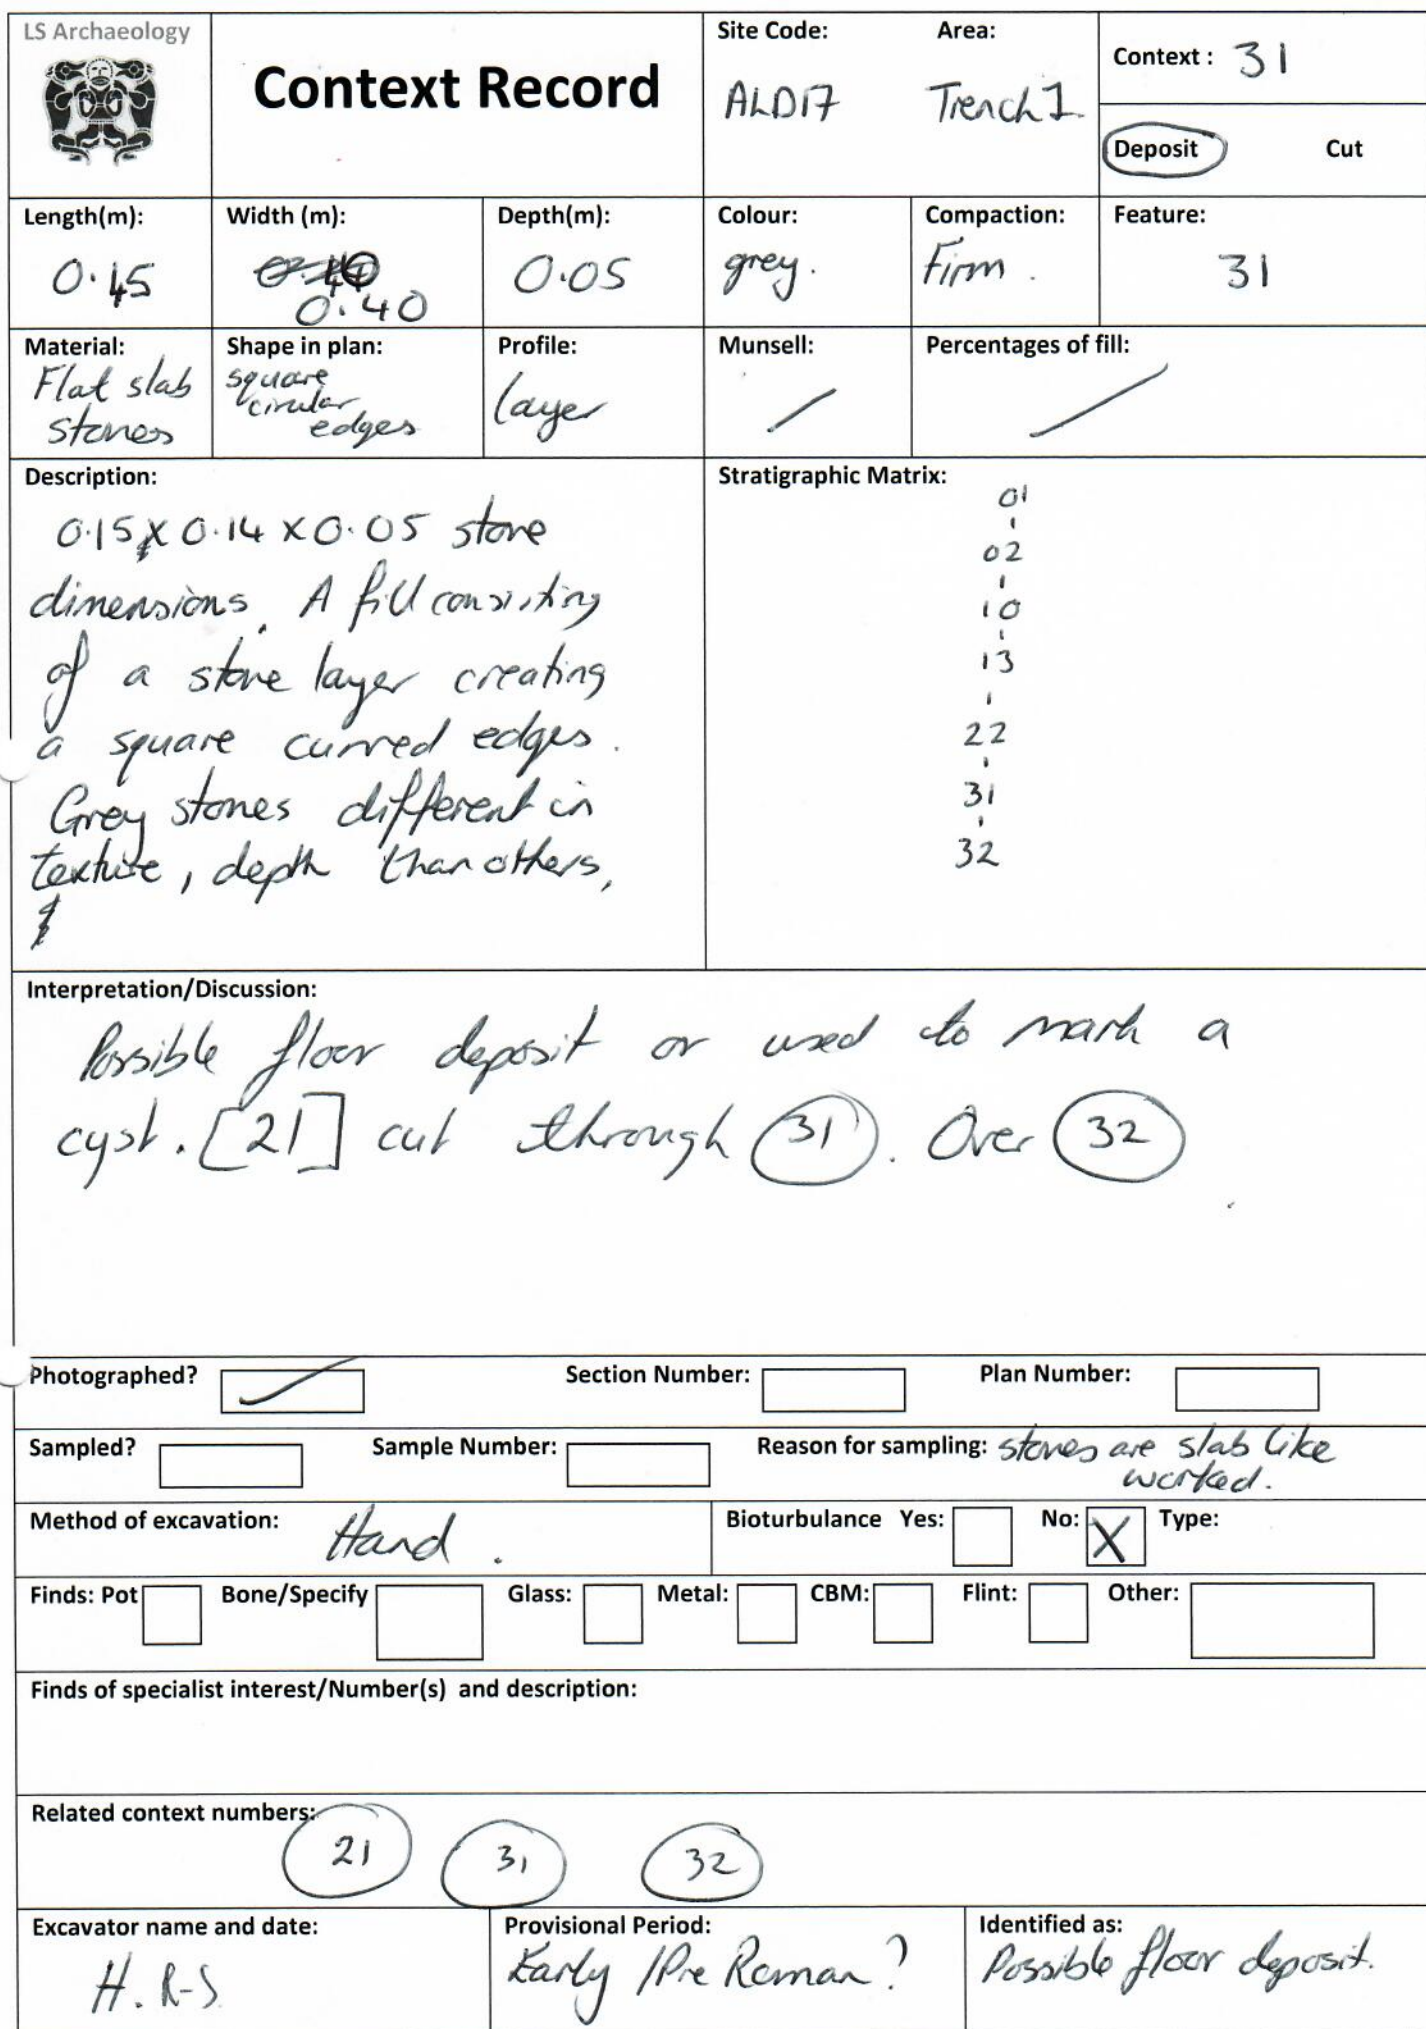 LS Archaeology
Context Record
Site Code: Area:
ALD17 Trench 1
Context : 31
Deposit Cut
Length(m): Width (m): Depth(m): Colour: Compaction: Feature:
0.45 0.05 grey. Firm. 31
0.40
Material: Shape in plan: Profile: Munsell: Percentages of fill:
Flat slab square layer
stones circular
edges
Description:
0.15 x 0.14 x 0.05 stone
dimensions. A fill consisting
of a stone layer creating
a square curved edges.
Grey stones different in
texture, depth than others,
Stratigraphic Matrix:
01
02
10
13
22
31
32
Interpretation/Discussion:
Possible floor deposit or used to mark a
cyst. [21] cut through (31). Over (32)
Photographed? Section Number: Plan Number:
Sampled? Sample Number: Reason for sampling: stones are slab like
worked.
Method of excavation: Hand. Bioturbulance Yes: No: X Type:
Finds: Pot Bone/Specify Glass: Metal: CBM: Flint: Other:
Finds of specialist interest/Number(s) and description:
Related context numbers:
21 31 32
Excavator name and date: Provisional Period: Identified as:
H. R-S Early /Pre Roman? Possible floor deposit.